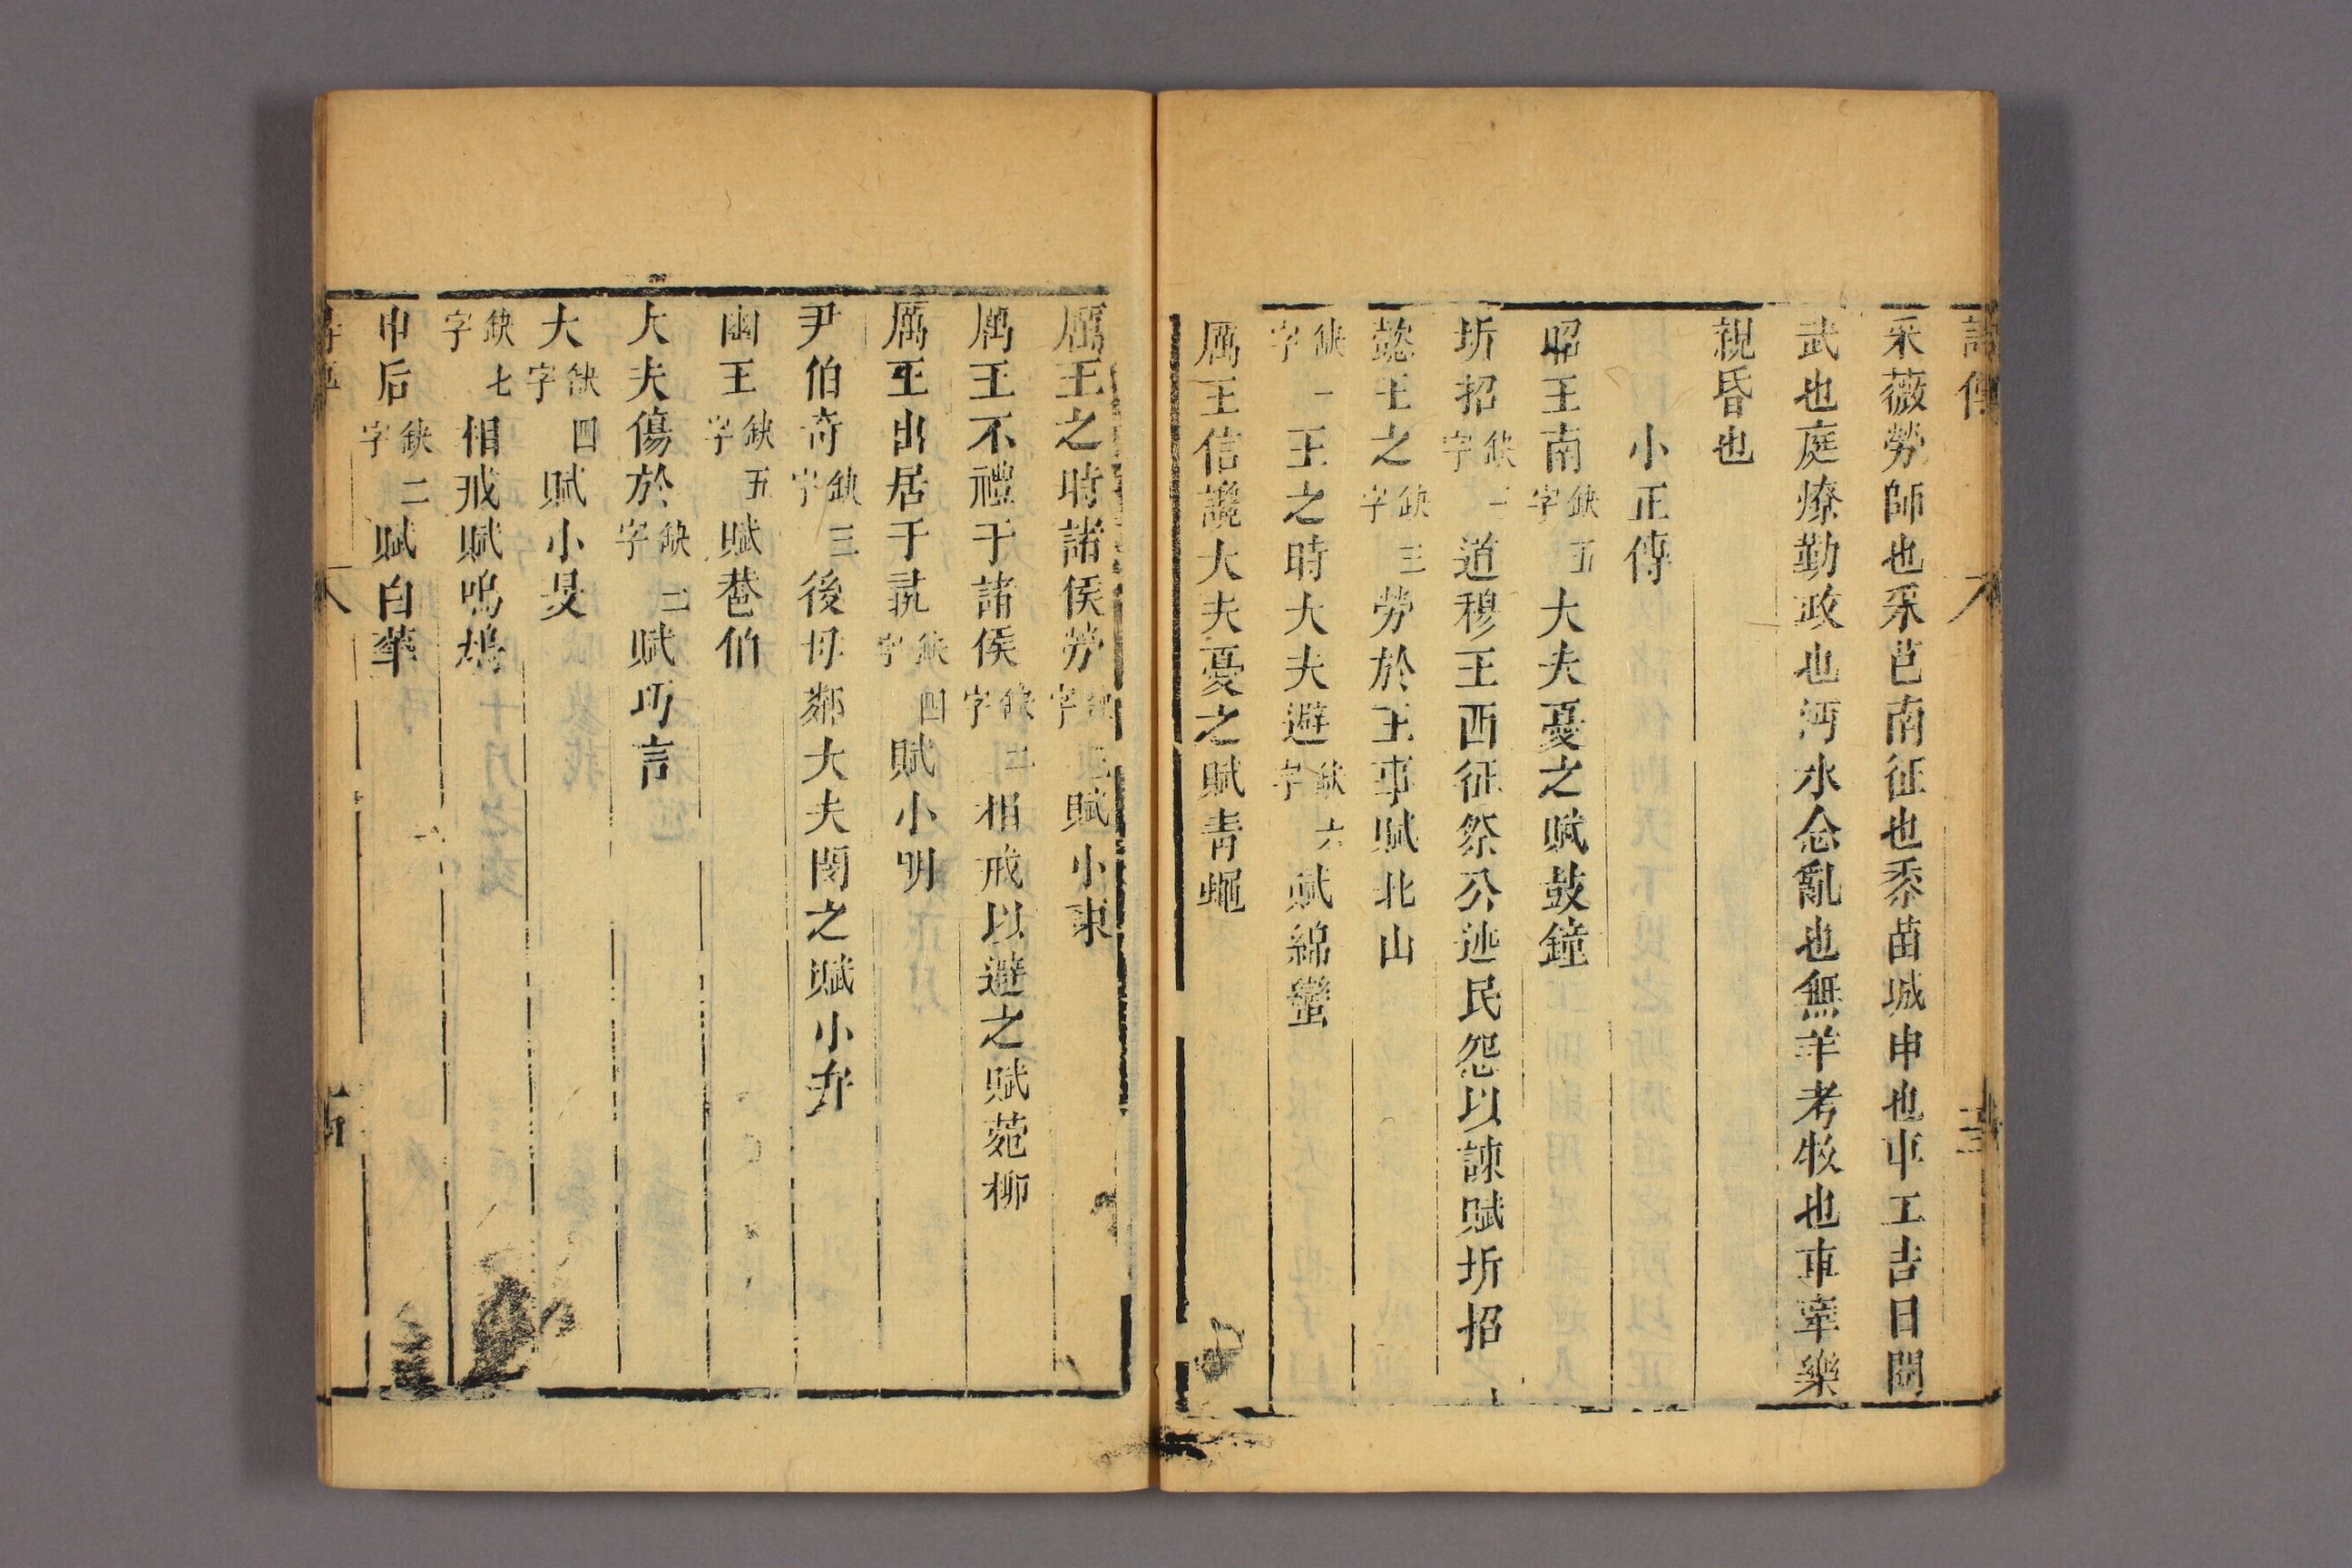 詩傳 八 三
采薇勞師也采芑南征也黍苗城申也車工吉日閱
武也庭燎勤政也沔水念亂也無羊考牧也車舝樂
親昏也
小正傳
昭王南缺五字大夫憂之賦鼓鐘
圻招缺二字道穆王西征祭公述民怨以諫賦圻招
懿王之缺三字勞於王事賦北山
缺一字王之時大夫避缺六字賦綿蠻
厲王信讒大夫憂之賦青蠅
厲王之時諸侯勞缺字賦小東
厲王不禮于諸侯缺二字相戒以避之賦菀柳
厲王出居于彘缺四字賦小明
尹伯奇缺三字後母鄰大夫閔之賦小弁
幽王缺五字賦巷伯
大夫傷於缺二字賦巧言
大缺四字賦小旻
缺七字相戒賦鳴鳩
申后缺二字賦白華